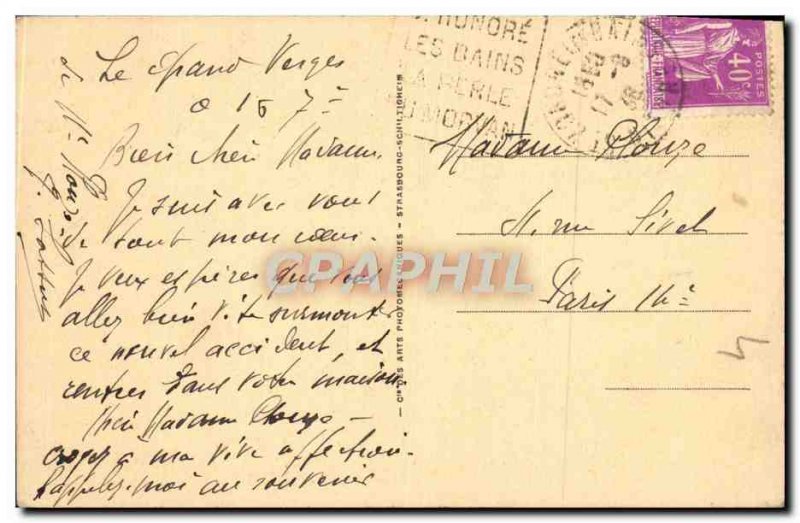 HONORÉ
LES BAINS
LA PERLE
DU MORVAN
POSTES
40c
Le Grand Verger
Bien chère Madame
Je suis avec vous
de tout mon cœur.
Je veux espérer que vous
allez bien vite surmonter
ce nouvel accident, et
rentrer dans votre maison
Chère Madame
croyez à ma vive affection.
Rappelez-moi au souvenir
de Mr
Madame
11. rue Sivel
Paris 14è
4
CIE DES ARTS PHOTOMECANIQUES - STRASBOURG-SCHILTIGHEIM
CPAPHIL.com